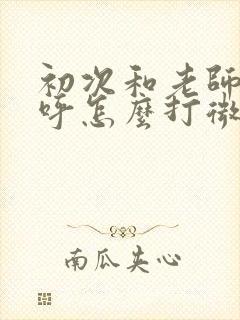 初次和老師
呼怎麼打微
南瓜夹心